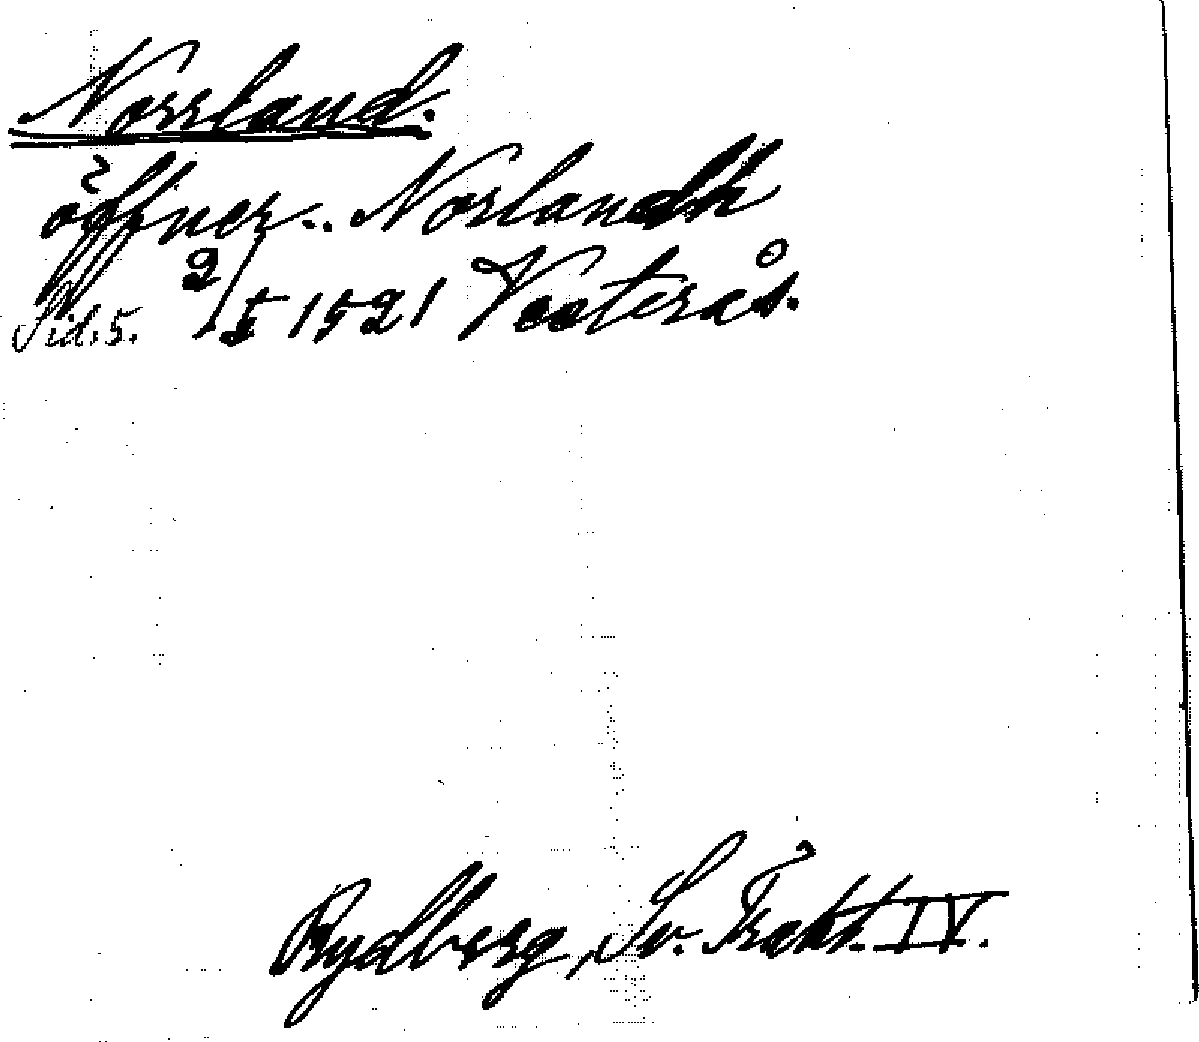 Norrland.
öffuer.. Norlandh
Sid. 5. 2/5 1521 Vesterås.
Rydberg, Sv. Trakt. IV.